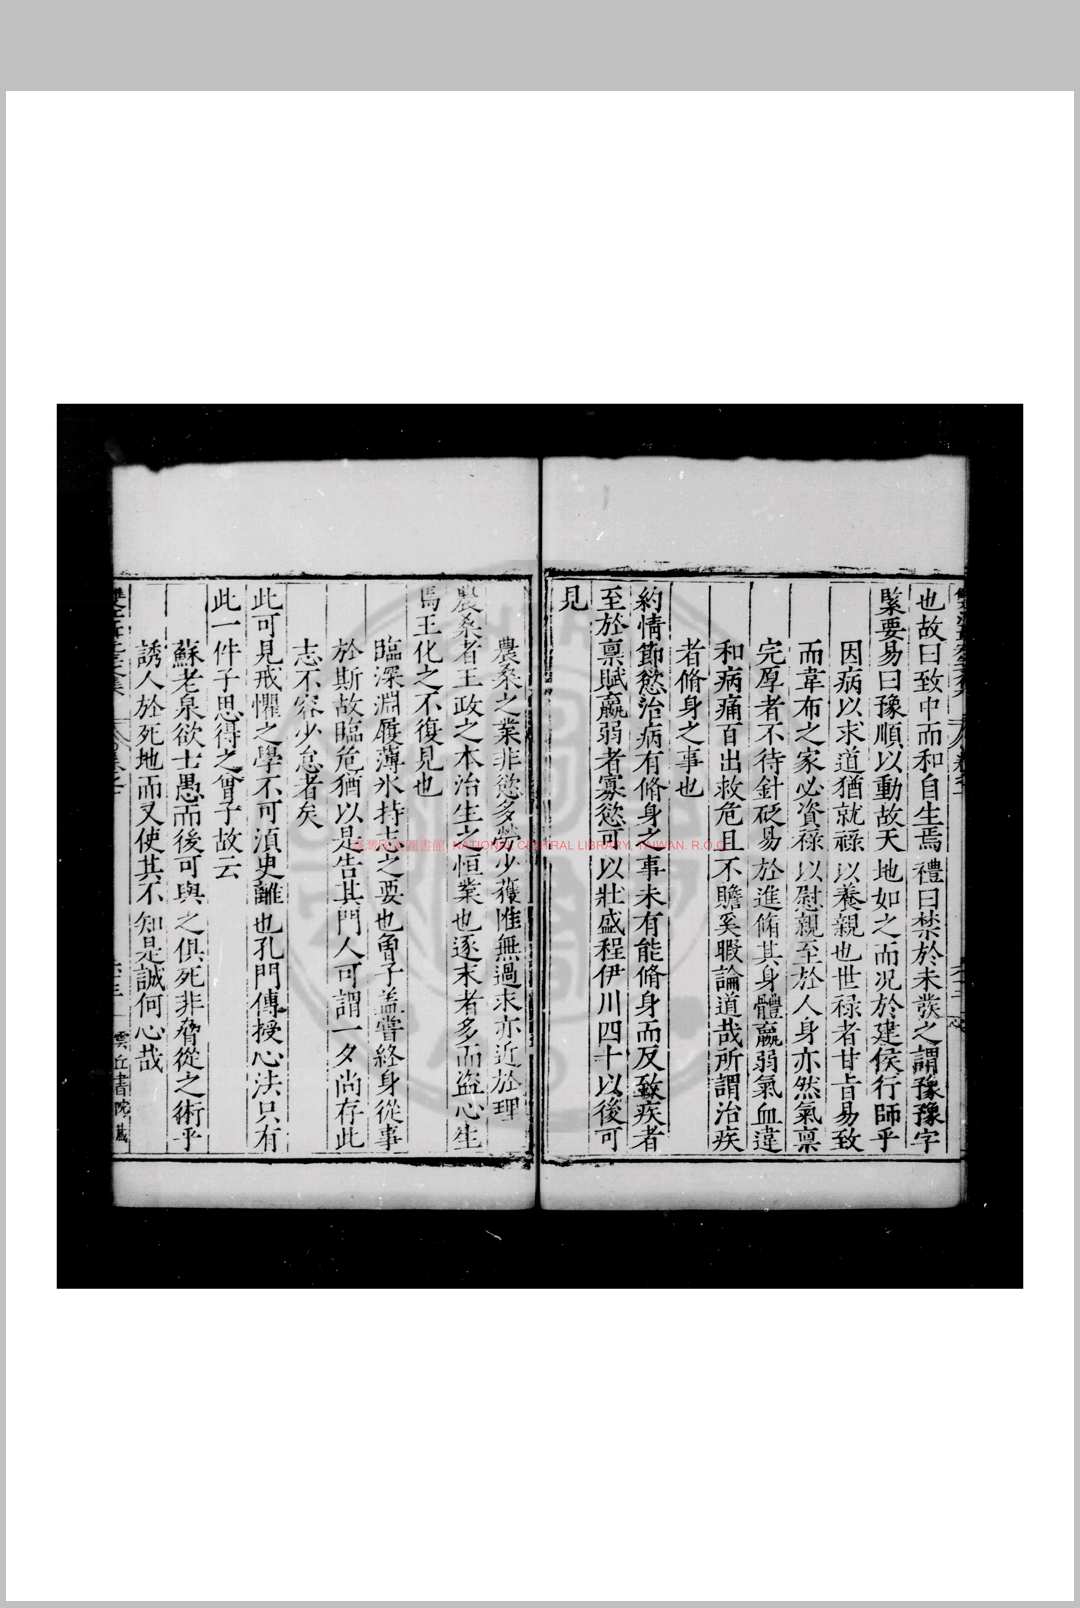 也故曰致中而和自生焉禮曰禁於未發之謂豫豫字
緊要易曰豫順以動故天地如之而况於建侯行師乎
因病以求道猶就祿以養親也世祿者甘旨易致
而韋布之家必資祿以慰親至於人身亦然氣稟
完厚者不待針砭易於進脩其身體羸弱氣血違
和病痛百出救危且不贍奚暇論道哉所謂治疾
者脩身之事也
約情節慾治病有脩身之事未有能脩身而反致疾者
至於稟賦羸弱者寡慾可以壯盛程伊川四十以後可
見
農桑之業非慾多勞少獲惟無過求亦近於理
農桑者王政之本治生之恒業也逐末者多而盜心生
焉王化之不復見也
臨深淵履薄氷持志之要也曾子盖嘗終身從事
於斯故臨危猶以是告其門人可謂一夕尚存此
志不容少怠者矣
此可見戒懼之學不可湏史離也孔門傳授心法只有
此一件子思得之曾子故云
蘇老泉欲士愚而後可與之俱死非脅從之術乎
誘人於死地而又使其不知是誠何心哉
雲丘書院藏
NATIONAL CENTRAL LIBRARY, TAIWAN, R.O.C